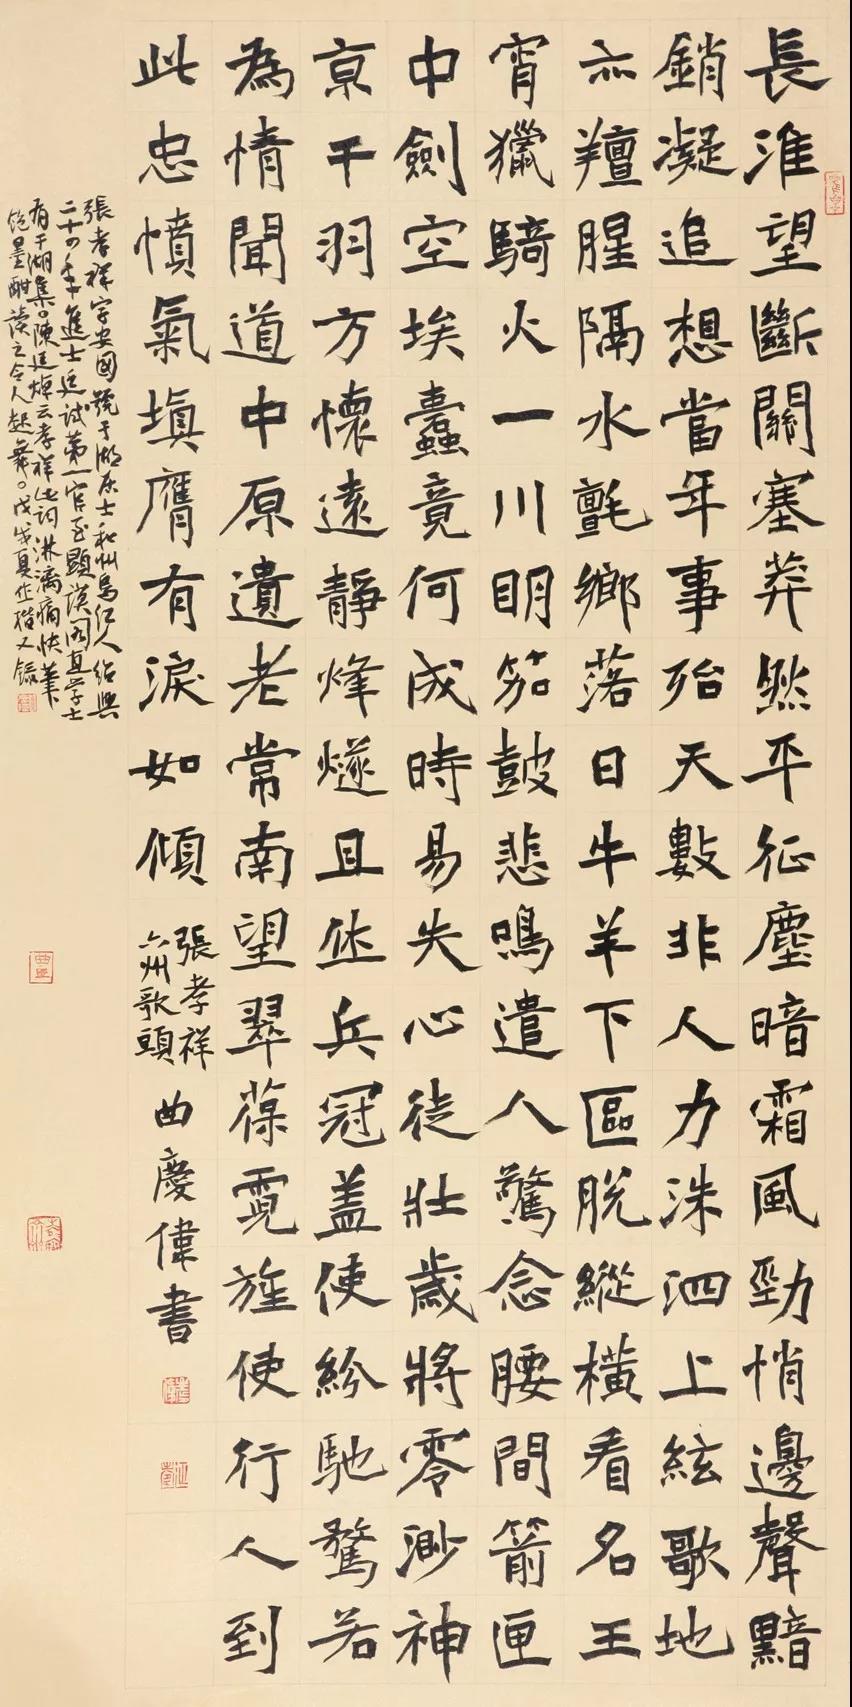 長淮望斷關塞莽然平征塵暗霜風勁悄邊聲黯
銷凝追想當年事殆天數非人力洙泗上絃歌地
亦羶腥隔水氈鄉落日牛羊下區脫縱橫看名王
宵獵騎火一川明笳鼓悲鳴遣人驚念腰間箭匣
中劍空埃蠹竟何成時易失心徒壯歲將零渺神
京干羽方懷遠靜烽燧且休兵冠盖使紛馳騖若
為情聞道中原遺老常南望翠葆霓旌使行人到
此忠憤氣填膺有淚如傾
張孝祥
六州歌頭
曲慶偉書
張孝祥字安國號于湖居士和州烏江人紹興
二十四年進士廷試第一官至顯謨閣直學士
有于湖集。陳廷焯云孝祥此詞淋漓痛快筆
飽墨酣讀之令人起舞。戊戌夏作楷又錄